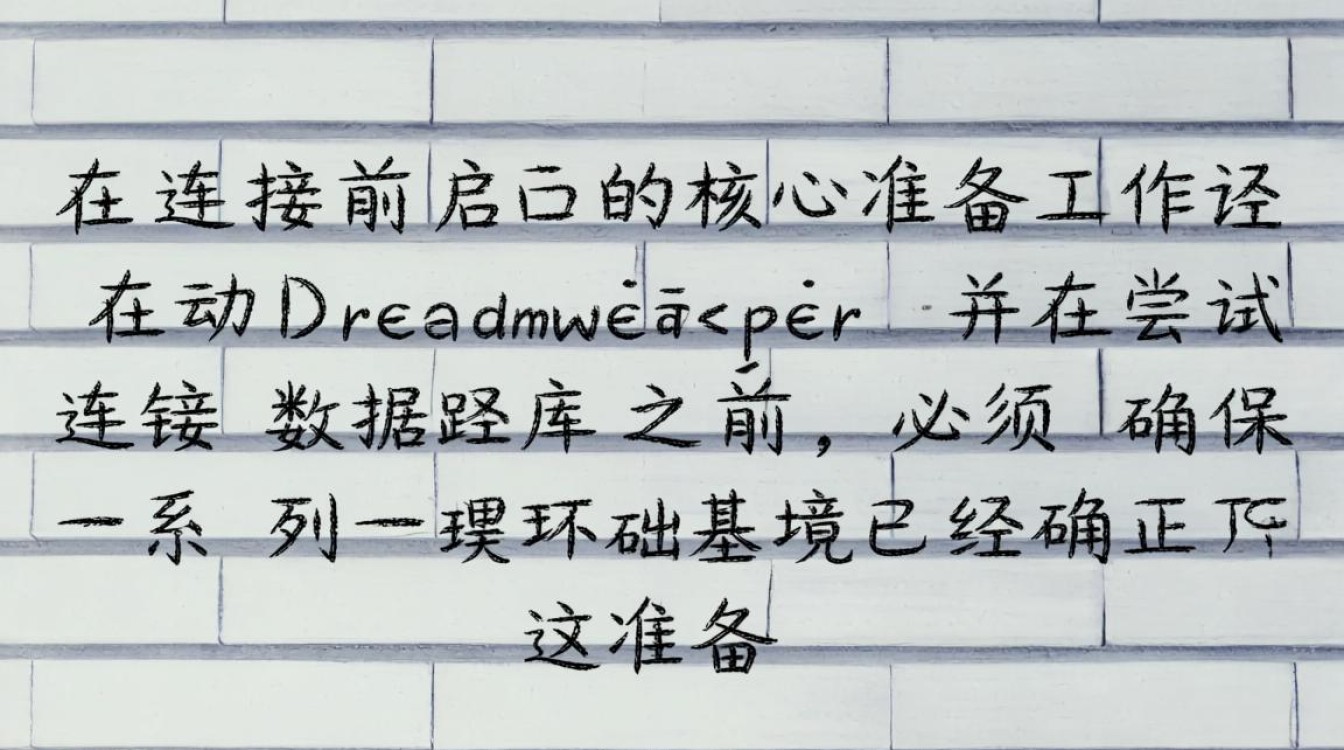 在连接前启的核心准备工作
在动Dreadmwėā<pėr 并在尝试
连接 数据库 之前，必须 确保
一系 列一环础基境已经确正
这准备